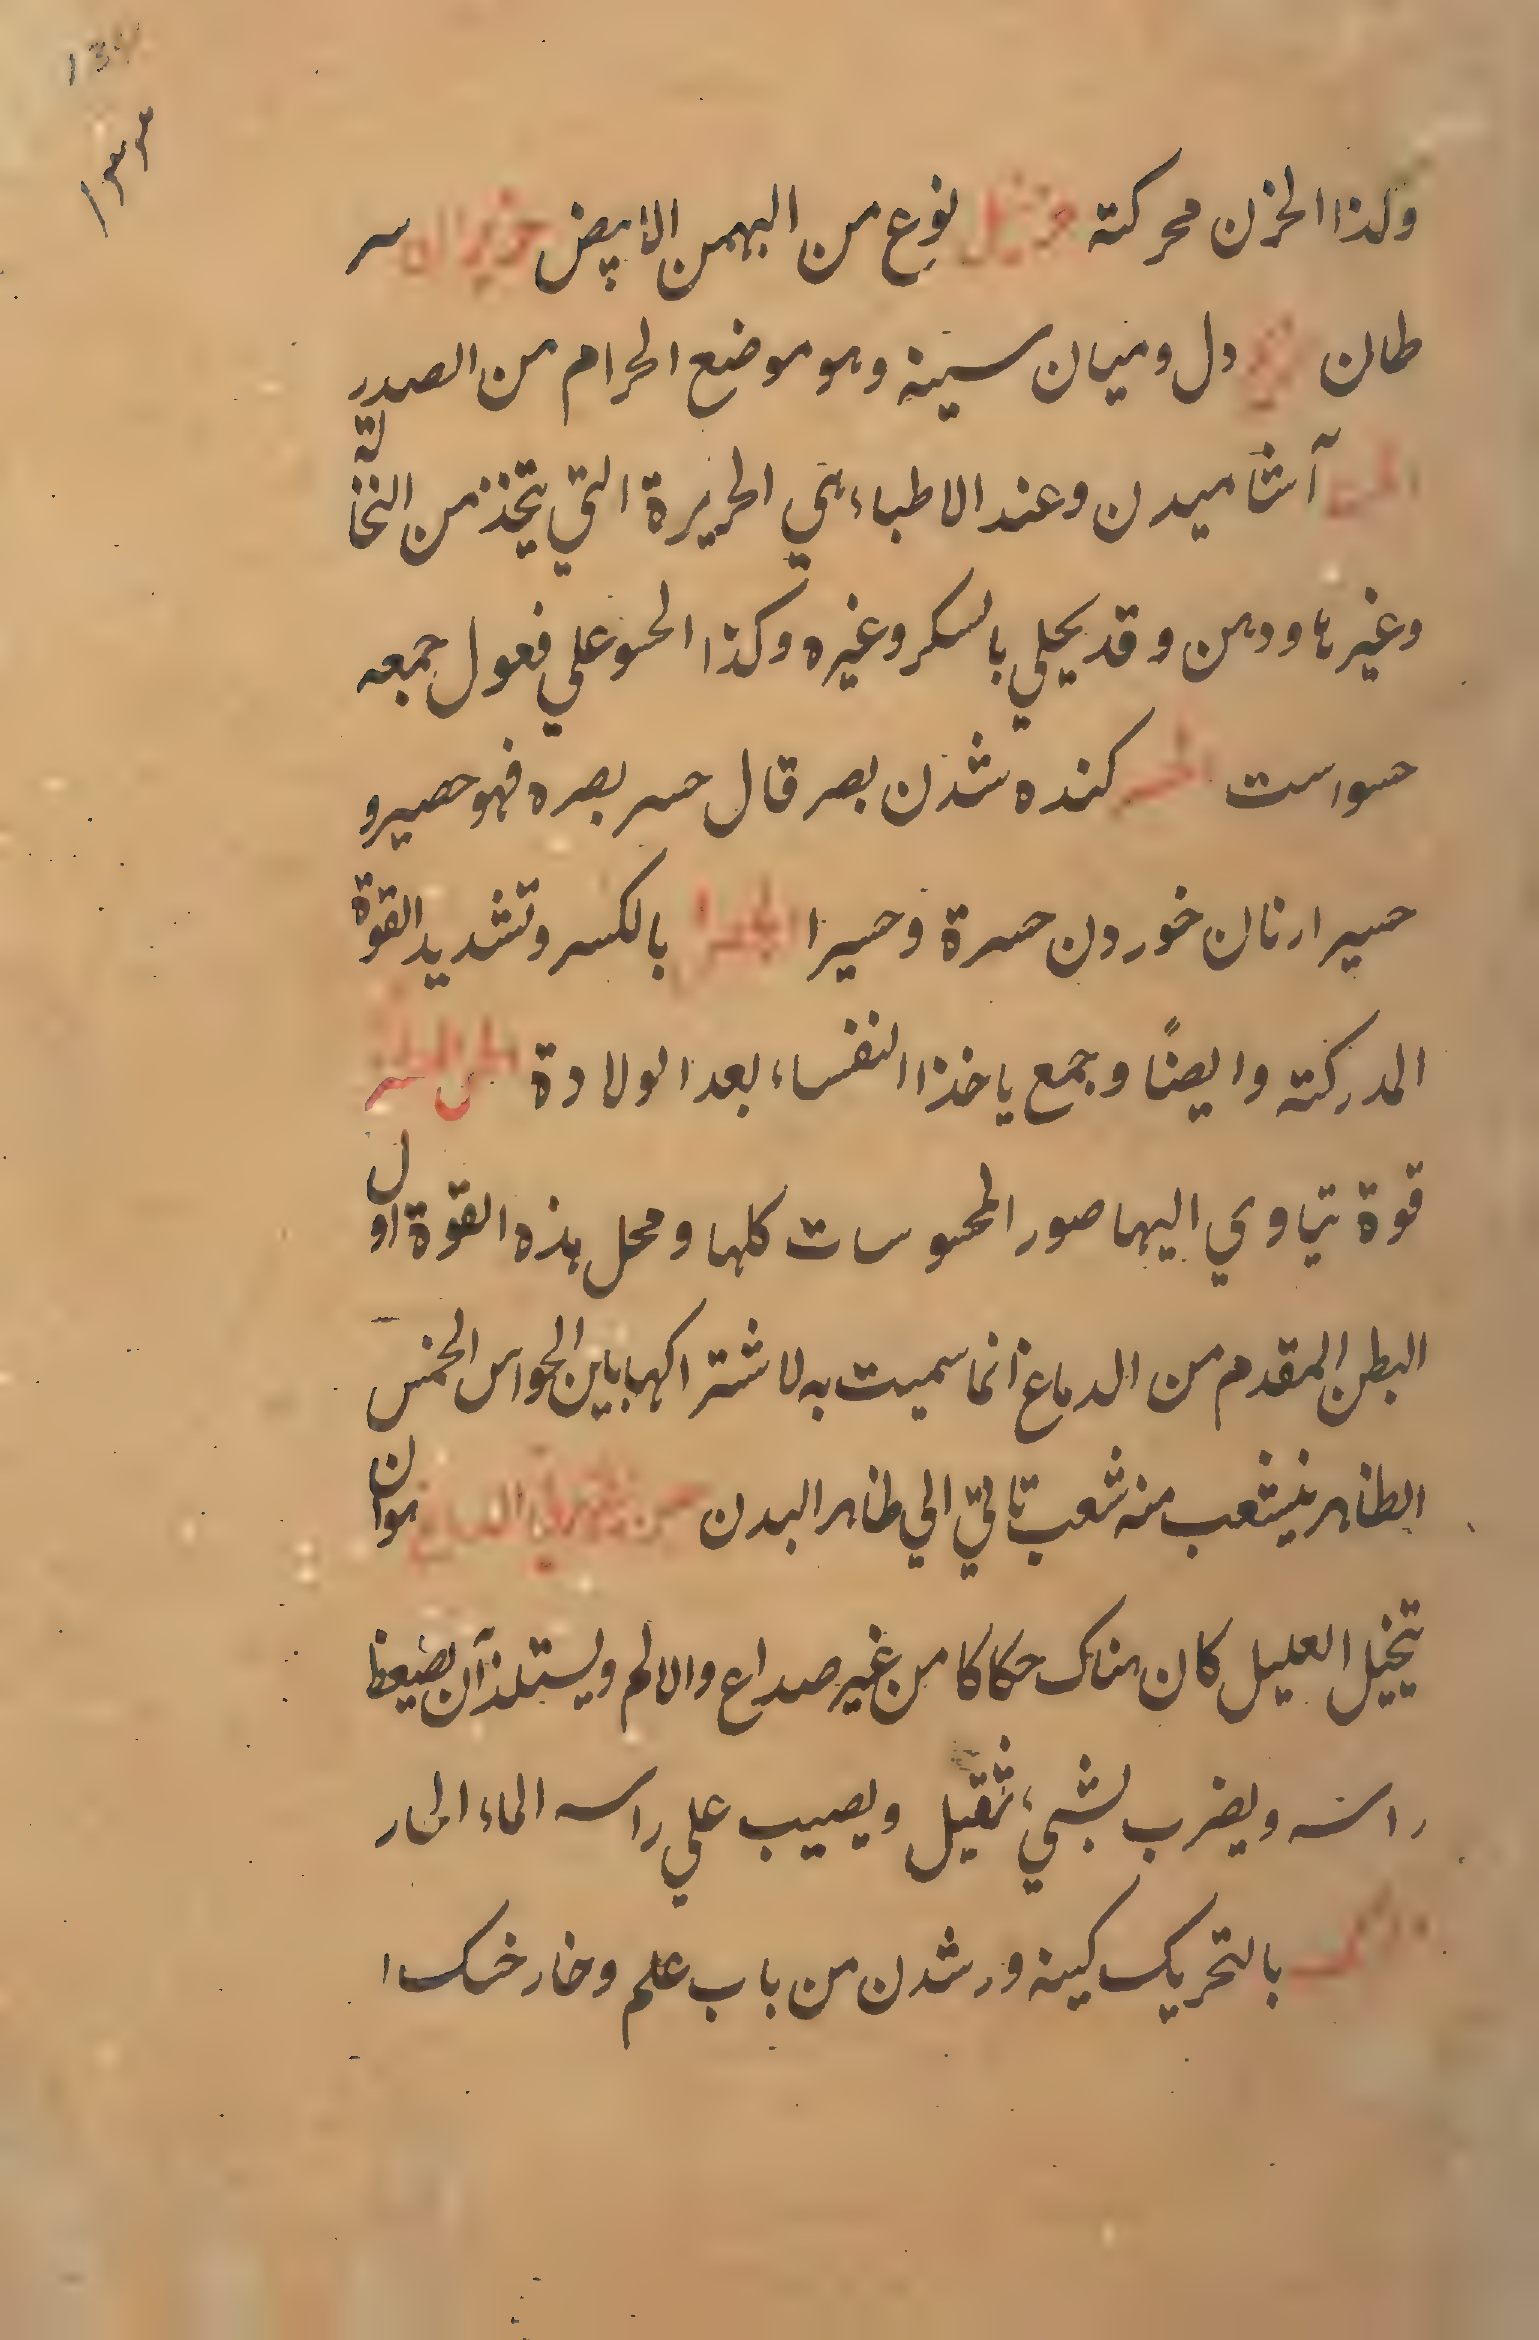 ۱۳۳
وكذا الحزن محركته نوع من البهمن الابيض حزيران سر
طان دل وميان سينه وهو موضع الحزام من الصدر
الحسا آشاميدن وعند الاطباء هي الحريرة التي يتخذ من النخالة
وغيرها ودهن وقد يحلي بالسكر وغيره وكذا الحسو علي فعول جمعه
حسو است الحسر كنده شدن بصر قال حسر بصره فهو حصير و
حسير ارنان خوردن حسرة وحسيرا بالكسر وتشديد القوة
المدركته وايضًا وجمع ياخذ النفساء بعد الولادة الحس المشتر
قوة يتاوي اليها صور المحسوسات كلها ومحل هذه القوة اول
البطن المقدم من الدماغ انما سميت به لاشتراكها باين الحواس الخمس
الظاهر ينشعب منه شعب تاتي الي ظاهر البدن الدماغ هو ان
يتخيل العليل كان هناك حكاكا من غير صداع والالم ويستلذ آن يضيعظ
راسه ويضرب بشيء ثقيل ويصيب علي راسه الماء الحار
بالتحريك كينه ور شدن من باب علم وخار خسك ا